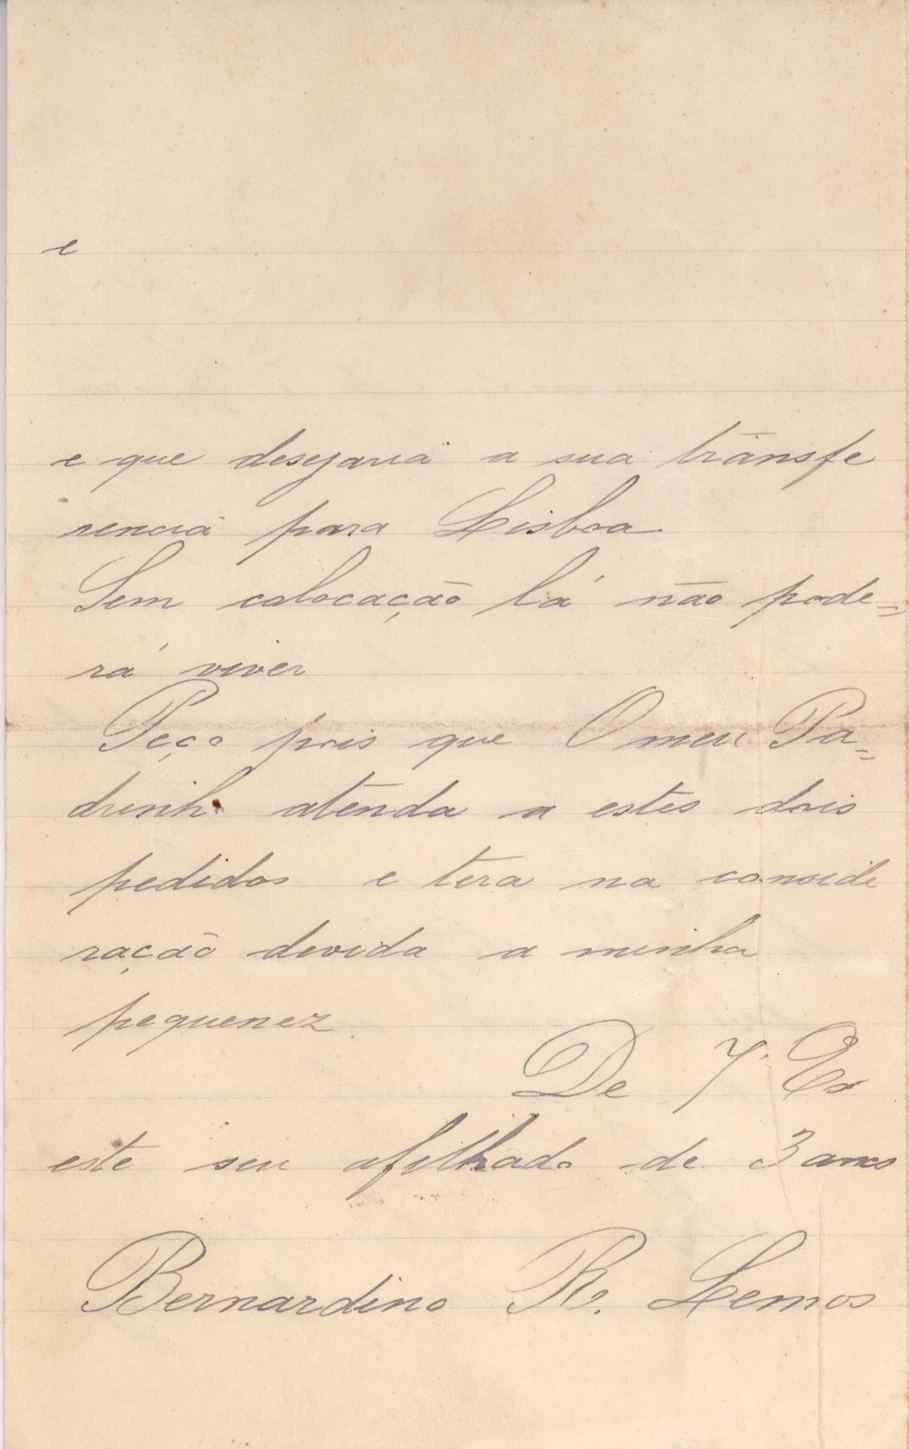 e
e que desejaria a sua transfe
rencia para Lisboa
Sem colocação lá não pode=
rá viver
Peço pois que O meu Pa=
drinho atenda a estes dois
pedidos e terá na conside
ração devida a minha
pequenez.
De V. Ex
este seu afilhado de 3 anos
Bernardino R. Lemos